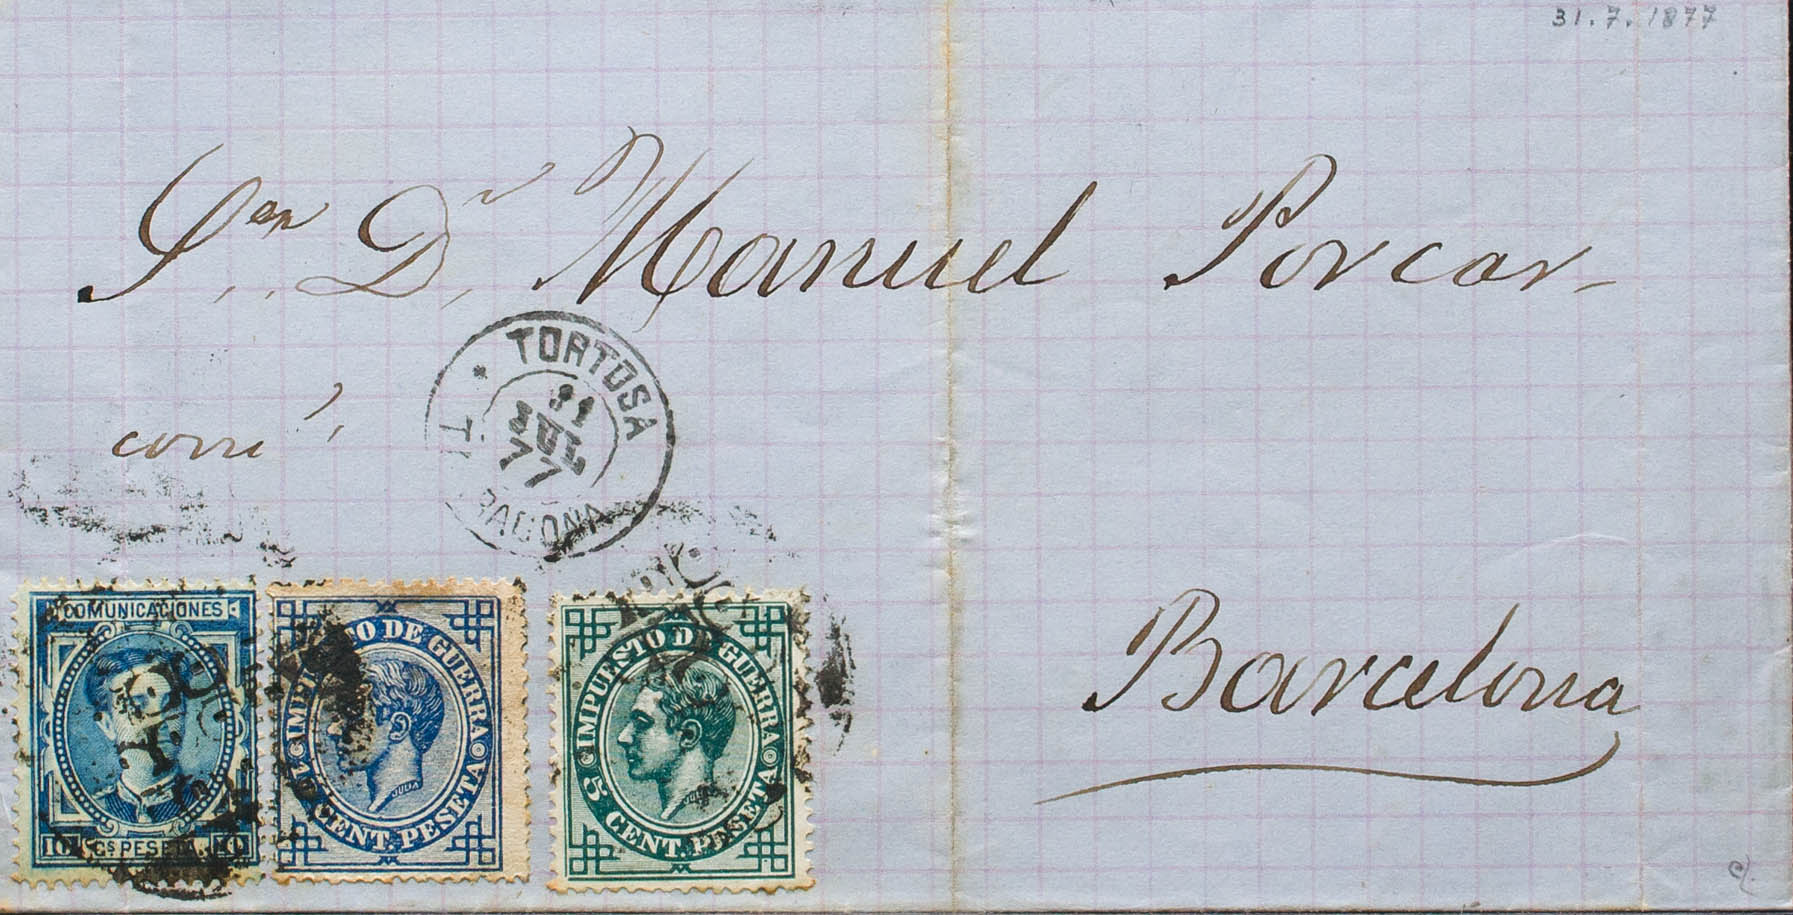 31.7.1877
Sr. D. Manuel Porcar
TORTOSA
31
JUL
77
RAGONA
Barcelona
COMUNICACIONES
10 Cs PESETA 10
IMPUESTO DE GUERRA
CENT. PESETA
JULIA
IMPUESTO DE GUERRA
5 CENT. PESETA
JULIA